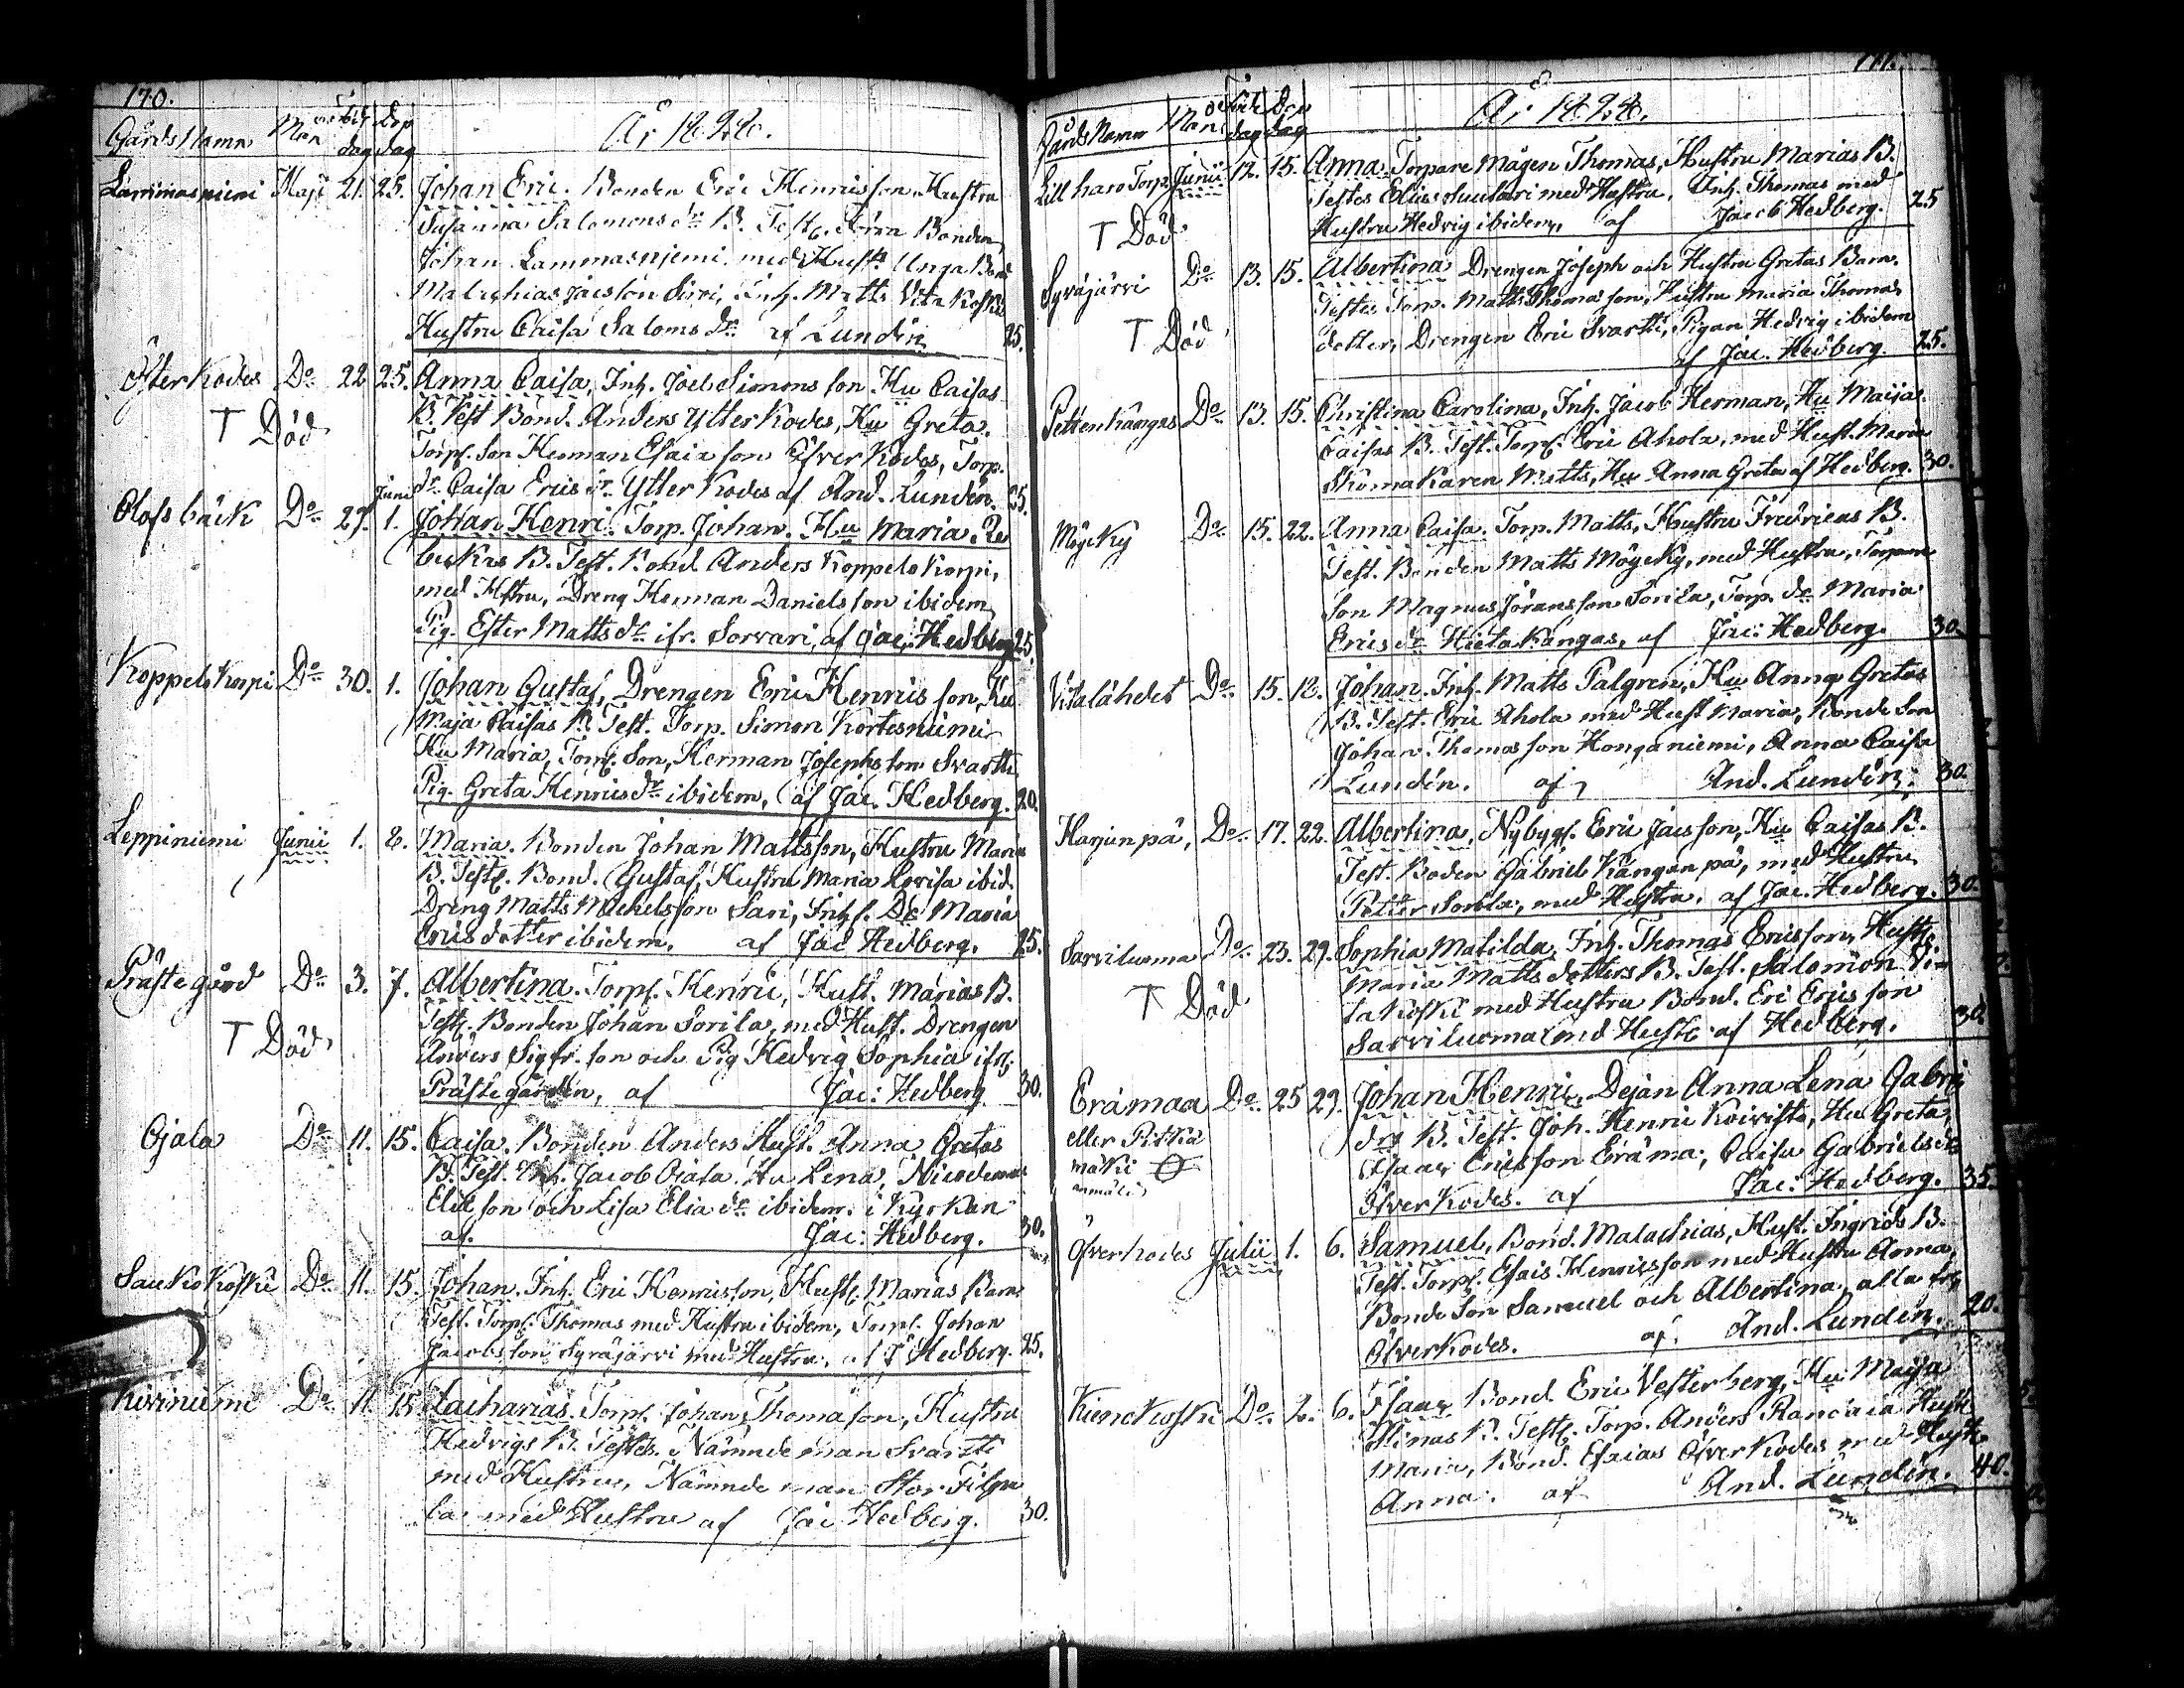 170.
Gårds Namn Mån Föd. dag Dop dag År 1828.
Lammasniemi Maji 21. 25. Johan Eric. Bonden Eric Henrisson, Hustru
Susanna Salomons dr B. Test. Förra Bonden
Johan Lammasnjemi med Hust. Unga Bond
Malachias Jacsson Siiri, Inh. Matts Vita Koski
Hustru Caisa Saloms dr af Lundén 25.
Ytter Kodes Do 22 25. Anna Caisa, Inh. Joel Simons son Hu Caisas
† Död
B. Test Bond. Anders Ytter Kodes, Hu Greta.
Torp. Son Herman Esaia son Öfver Kodes, Torp.
dr Caisa Erics dr Ytter Kodes af And. Lundén. 25.
Olofs bäck Do 29. Juni 1. Johan Henric. Torp. Johan. Hu Maria Re
beckas B. Test. Bond Anders Koppelo Korpi,
med Hstru, Dreng Herman Daniels son ibidem
Pig. Ester Matts dr ifr. Sorvari, af Jac. Hedberg 25.
Koppelo Korpi Do 30. 1. Johan Gustaf, Drengen Eric Henrics son, Hu
Maja Caisas B. Test. Torp. Simon Kortesniemi
Hu Maria, Torp. Son, Herman Josephs son Svartti
Pig. Greta Henrics dr ibidem, af Jac. Hedberg. 20.
Leppiniemi Junii 1. 8. Maria. Bonden Johan Mattsson, Hustru Maria
B. Test. Bond. Gustaf, Hustru Maria Lovisa ibid.
Dreng Matts Michelsson Sari, Inh. Dr Maria
Erics dotter ibidem. af Jac Hedberg. 25.
Präste gård Do 3. 7. Albertina. Torp. Henric, Hust. Marias B.
† Död
Test. Bonden Johan Sorila, med Hust. Drengen
Anders Sigfr. son och Pig Hedvig Sophia ifr.
Prästegården, af Jac: Hedberg 30.
Ojala Do 11. 15. Caisa. Bonden Anders Hust. Anna Gretas
B. Test. Inh. Jacob Ojala Hu Lena, Nicodemus
Elie son och Lisa Elia dr ibidem. i Kyrkan
af. Jac: Hedberg. 30.
Saukko Koski Do 11. 15. Johan. Inh. Eric Henricsson, Hust. Marias Barn
Test. Torp. Thomas med Hustru ibidem, Torp. Johan
Jacobs son Syväjärvi med Hustru. af J Hedberg. 25.
Kiviniemi Do 11. 15 Zacharias. Torp. Johan Thomason, Hustru
Hedvigs B. Testes. Nämnde man Svartti
med Hustru, Nämnde man Stor Filpu
la med Hustru af Jac Hedberg. 30.
171.
Gårds Namn Mån Föd. dag Dop dag År 1828.
Lill haro Torp. Junii 12. 15. Anna. Torpare Mågen Thomas, Hustru Marias B.
† Död
Testes Elias Huutari med Hustru, Inh. Thomas med
Hustru Hedvig ibidem, af Jacob Hedberg. 25
Syväjärvi Do 13. 15. Albertina Drengen Joseph och Hustru Gretas Barn.
† Död
Testes Torp. Matts Thomas son, Hustru Maria Thomas
dotter, Drengen Eric Svartti, Pigan Hedvig ibidem
af Jac. Hedberg. 25.
Petten Kangas Do 13. 15. Christina Carolina, Inh. Jacob Herman, Hu Maija
Caisas B. Test. Torp. Eric Ahola, med Hust. Maria
Matts, Hu Anna Greta af Hedberg. 30.
Möyeky Do 15. 22. Anna Caisa. Torp. Matts, Hustru Fredricas B.
Test. Bonden Matts Möyeky, med Hustru, Torpare
Son Magnus Göransson Sorila, Torp. dr Maria
Erics dr Hieta Kangas, af Jac: Hedberg. 30.
Vitalähdet Do 15. 18. Johan. Inh. Matts Palgren, Hu Anna Gretas
B. Test. Eric Ahola med Hust Maria, Bonde Son
Johan Thomas son Honganiemi, Anna Caisa
Lundén. af And. Lundén. 30.
Harjun pä, Do 17. 22. Albertina, Nybygg. Eric Jacsson, Hu Caisas B.
Test. Boden Gabriel Kangan pä, med Hustru
Petter Sorila, med Hustru. af Jac. Hedberg. 30.
Sarviluoma Do 23. 29. Sophia Matilda, Inh. Thomas Ericsson, Hust.
† Död
Maria Matts dotters B. Test. Salomon Vi
ta Koski med Hustru Bond. Eri Erics son
Sarviluoma med Hust af Hedberg. 30.
Erämaa Do 25 29. Johan Henric, Dejan Anna Lena Gabri
eller Pitkä
mäki
drs B. Test. Joh. Henric Koivisto, Hu Greta,
Isaac Ericsson Eräma, Caisa Gabriels dr
Öfver Kodes. af Jac: Hedberg. 35.
Öfverkodes Julii 1. 6. Samuel, Bond. Malachias, Hust. Ingrids B.
Test. Torp. Esais Henricsson med Hustru Anna,
Bonde Son Samuel och Albertina, alla frg
Öfver Kodes. af And. Lundén. 20.
Kienokoski Do 2. 6. Isaac Bond. Eric Vesterberg, Hu Maija
Stinas B. Test. Torp. Anders Hust
Maria, Bond. Esaias Öfver Kodes med Hust
Anna. af And. Lundén. 40.